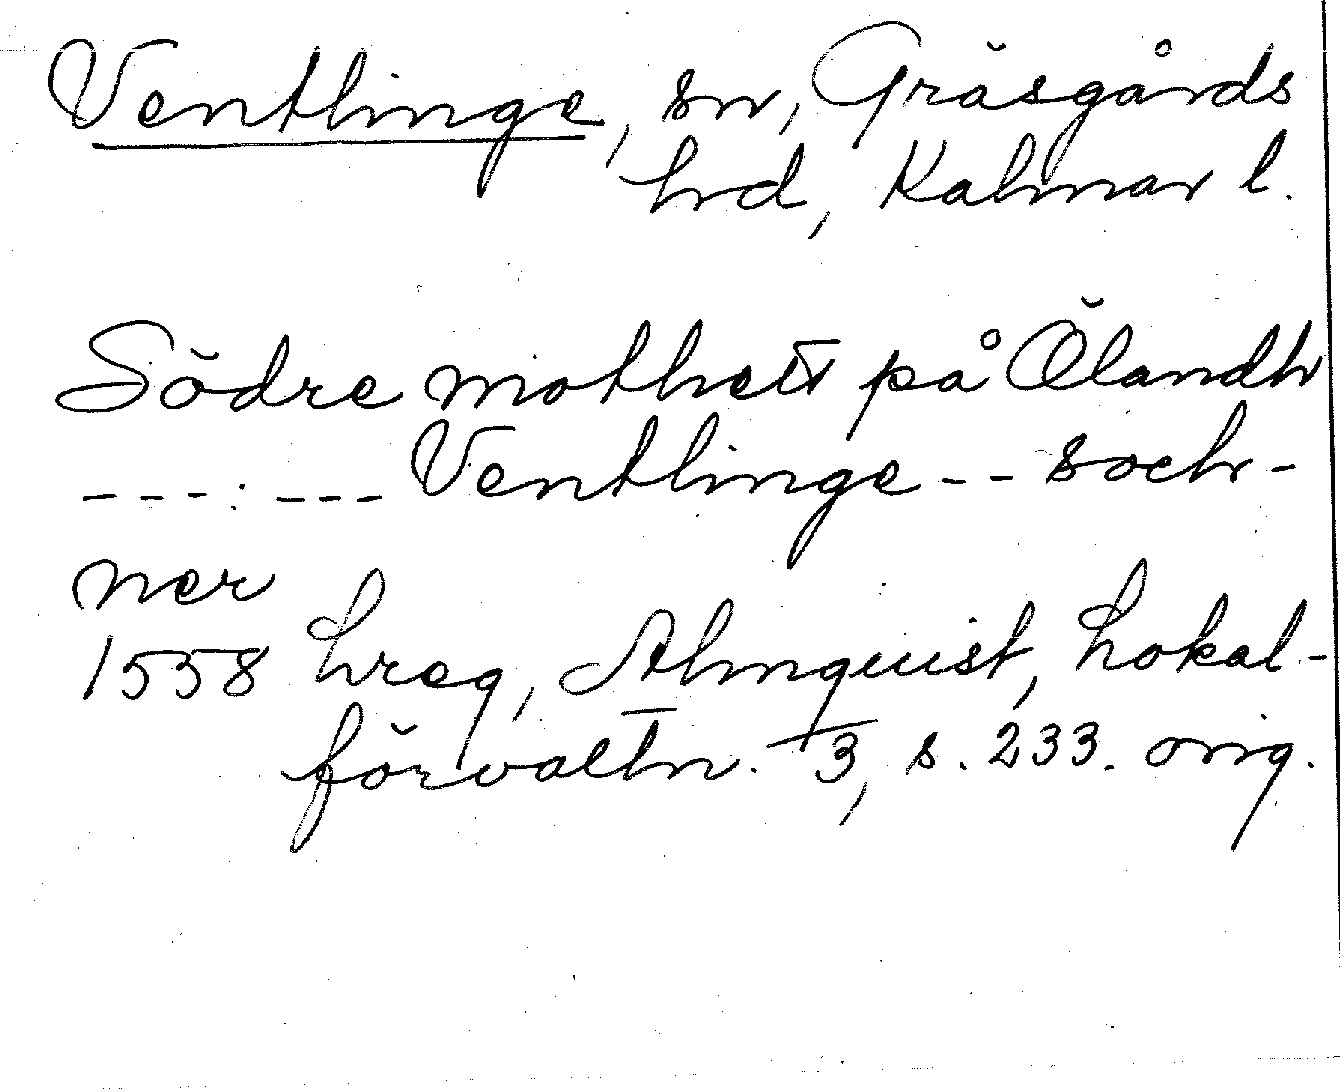 Ventlinge, sn, Gräsgårds
hrd, Kalmar l.
Södre mothett på Ölandh
--- . --- Ventlinge -- soch-
ner
1558 hreg, Almquist, Lokal-
förvaltn. 3, s. 233. orig.